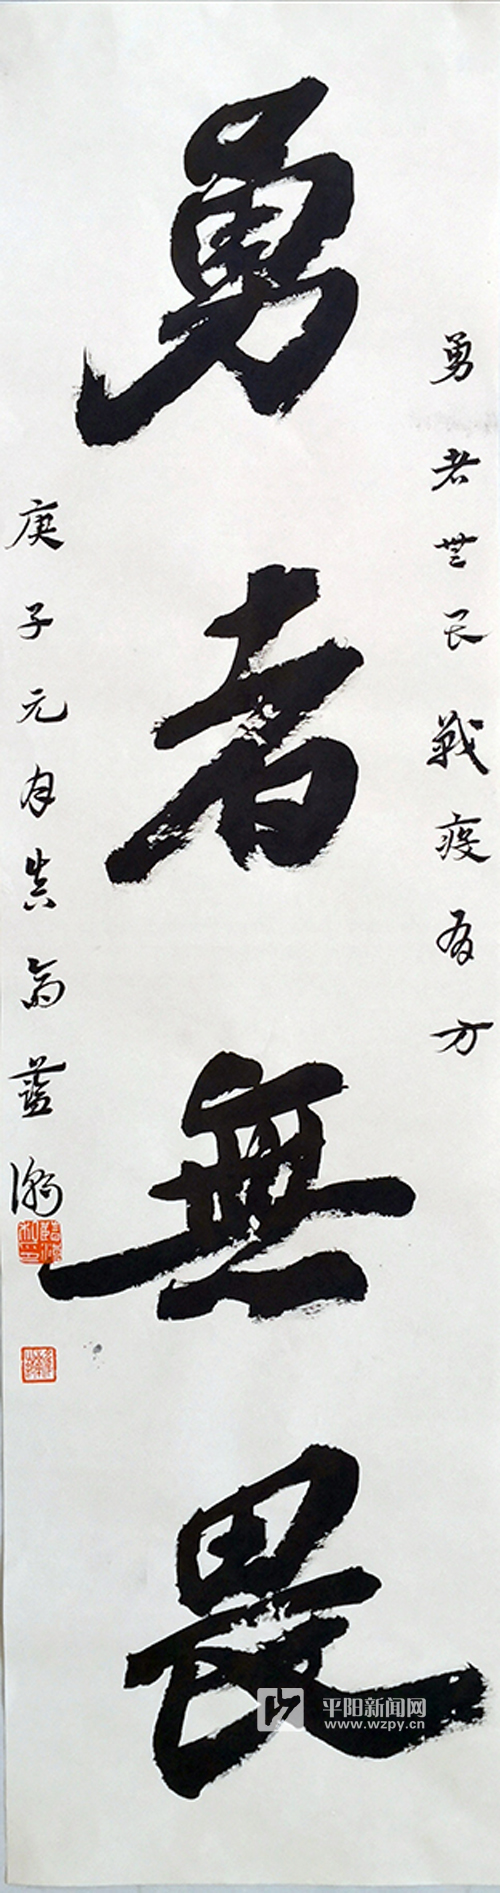 勇者無畏戰疫有方
勇者無畏
庚子元月藍
平阳新闻网
www.wzpy.cn